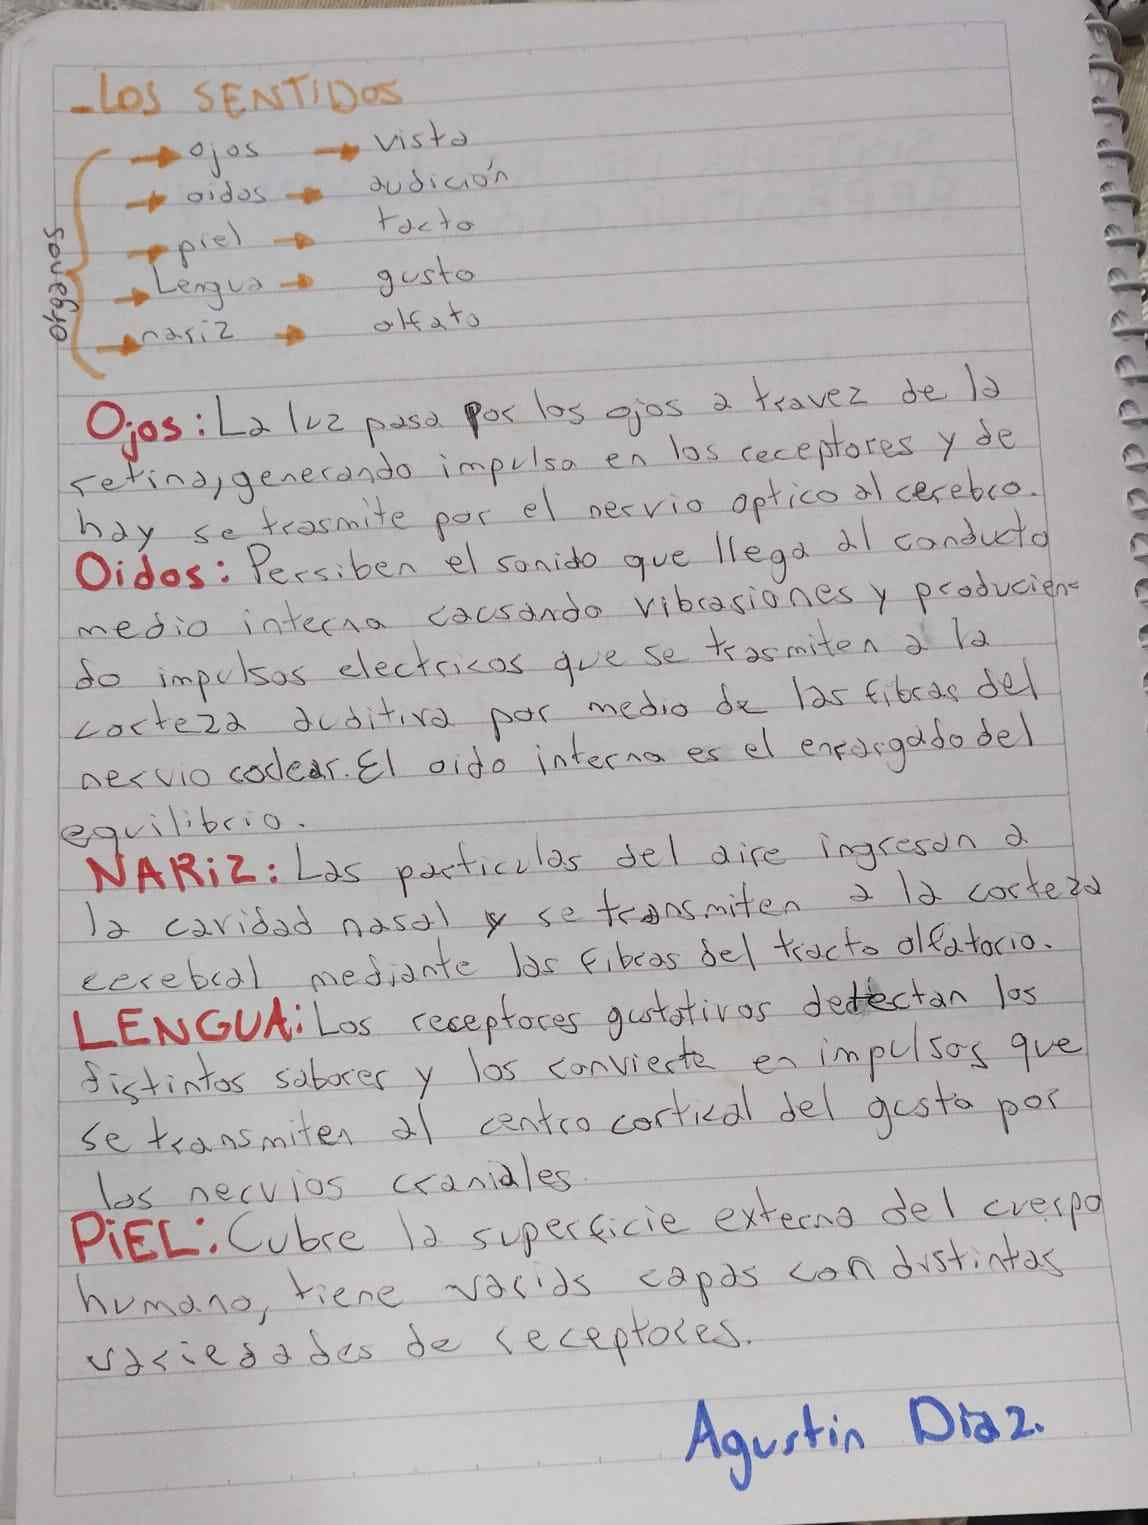 -LOS SENTIDOS
organos
→ ojos → vista
→ oidos → audición
→ piel → tacto
→ Lengua → gusto
→ nariz → olfato
Ojos: La luz pasa por los ojos a travez de la
retina, generando impulsa en los receptores y de
hay se trasmite por el nervio optico al cerebro.
Oidos: Persiben el sonido que llega al conducto
medio interna causando vibrasiones y producien-
do impulsos electricos que se trasmiten a la
corteza auditiva por medio de las fibras del
nervio codear. El oido interno es el enrargado del
equilibrio.
NARiZ: Las particulas del aire ingresan a
la cavidad nasal y se transmiten a la corteza
cerebral mediante las fibras del tracto olfatorio.
LENGUA: Los receptores gustativos detectan los
distintos sabores y los convierte en impulsos que
se transmiten al centro cortical del gusto por
los nervios craniales.
PiEL: Cubre la superficie externa del cuerpo
humano, tiene varias capas con distintas
variedades de receptores.
Agustin Diaz.